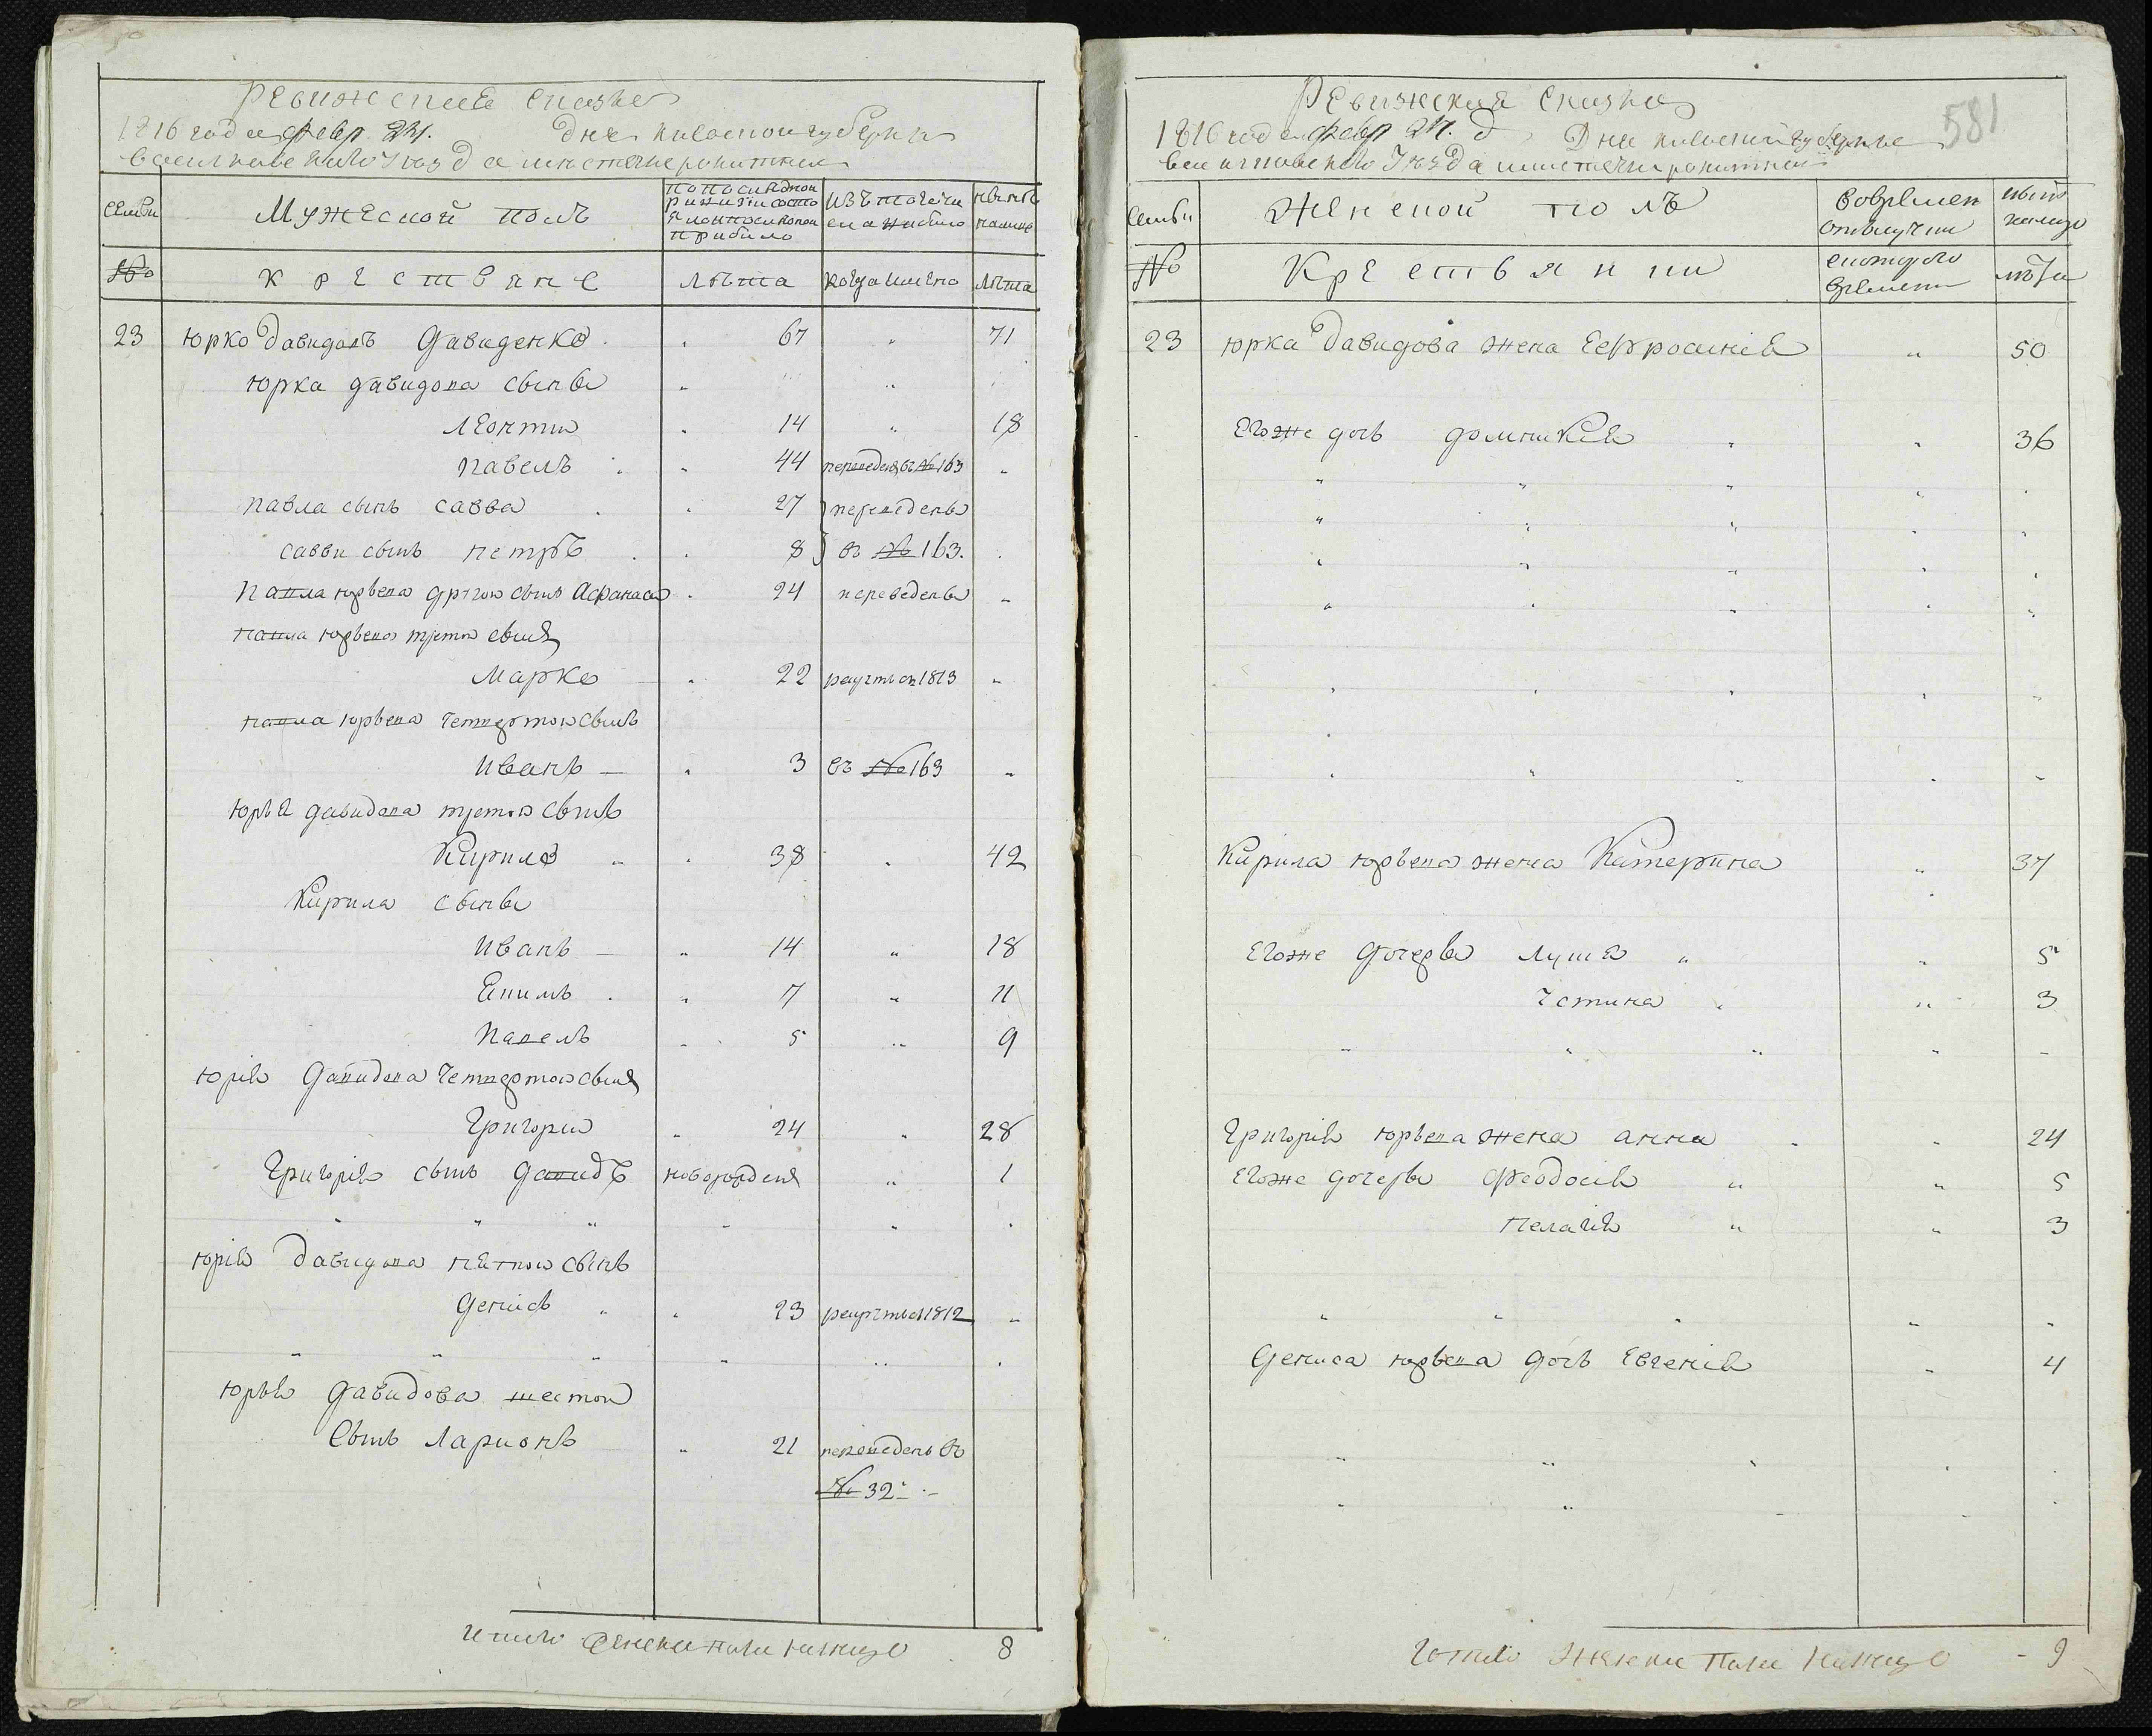 Ревижская сказка
1816 года февр 24. дня киевской губерни
василковского уезда местечке рокитней
семьи
Мужеской полъ
попоследной ревизии состояло и после оной прибило
изъ того числа вибило
нинѣ налице
№
крестьяне
лѣта
когда имено
лѣта
23 юрко Давидовъ Давиденко 67 " 71
юрка давидова сыны
леонтий 14 " 18
павелъ 44 переведенъ въ № 163
павла сынъ савва 27 переведены
савви сынъ петръ 8 въ № 163.
павла юрьева другой сынъ Афанасий 24 переведены
павла юрьева третой сынъ
Марко 22 рекрутъ въ 1813
павла юрьева четвертой сынъ
иванъ 3 въ № 163
юрья давидова третой сынъ
Кирило 38 " 42
Кирила сыны
иванъ 14 " 18
Екимъ 7 " 11
павелъ 5 " 9
юрія Давидова четвертой сынъ
Григорий 24 " 28
Григорія сынъ давидъ новорожденъ " 1
юрія Давидова пятой сынъ
денисъ 23 рекрутъ въ 1812
юрья давидова шестой
сынъ Ларионъ 21 переведенъ въ
№ 32
итого мужеска пола налицо 8
581
Ревижская сказка
1816 года февр 24. д Дня киевской губерние
василковского уезда местечки рокитней
семьи
Женской полъ
вовремен отлучки
нынѣ налицо
№
Крестьянки
скоторого времени
лѣта
23 юрка Давидова жена Еефросинія " 50
Егоже дочь домникія " 36
Кирила юрьева жена Катерина " 37
Егоже дочеры луция " 5
устина " 3
Григорія юрьева жена анна " 24
Егоже дочеры Феодосія " 5
пелагія " 3
Дениса юрьева дочь Евгенія " 4
итого женска пола налицо 9